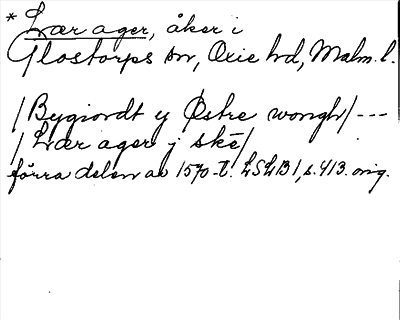 * Lær ager, åker i
Glostorps sn, Oxie hd, Malm. l.
/Bygiordt y Østre wongh/ ---
/ Lær ager j skē/
förra delen av 1570-t. LSLB 1, s. 413. orig.